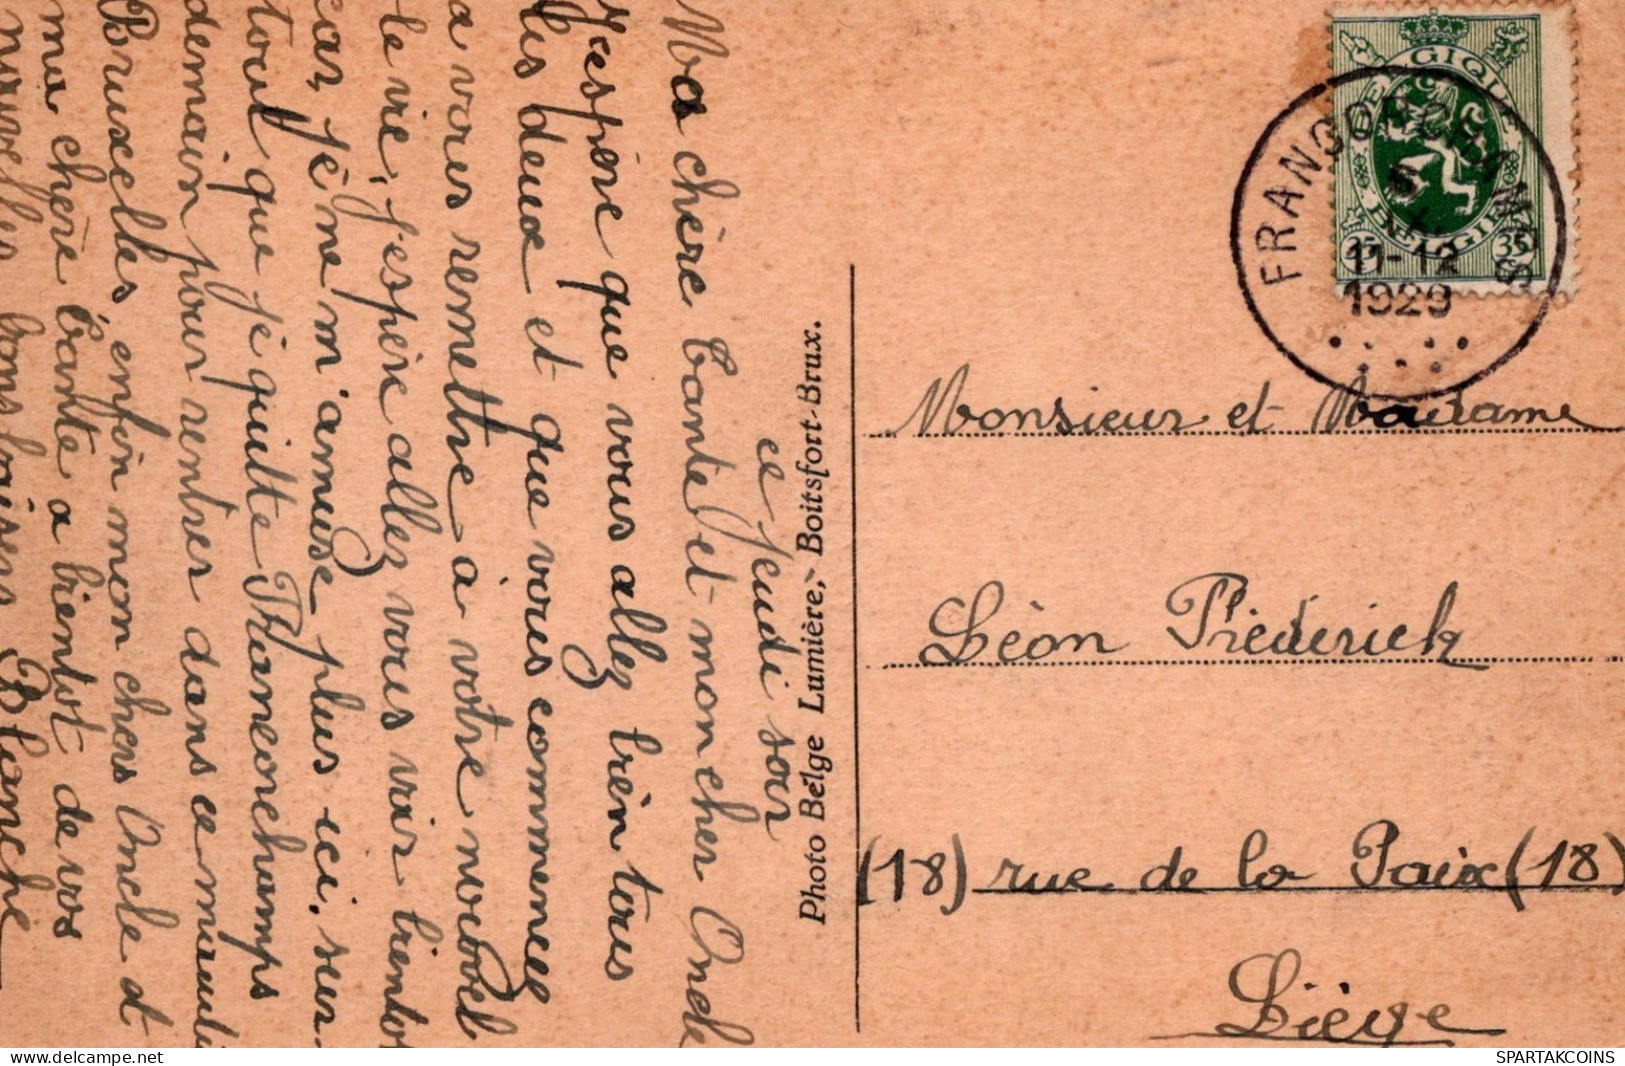 ce jeudi soir
Ma chère Tante et mon cher Oncle
J'espère que vous allez bièn tous
les deux et que vous commencez
a vous remettre à votre nouvel
le vie, j'espère allez vous voir bientot
car, je ne m'amuse plus ici, sur-
tout que je quitte Francorchamps
demain pour rentrer dans ce
Bruxelles, enfin mon chers Oncle et
ma chère tante a bientot de vos
nouvelles bons baisers Blanche
Photo Belge Lumière, - Boitsfort-Brux.
BELGIQUE
BELGIE
35 35
FRANCORCHAMPS
11-12
1929
Monsieur et Madame
Lèon Frédérick
(18) rue de la Paix (18)
Liège
SPARTAKCOINS